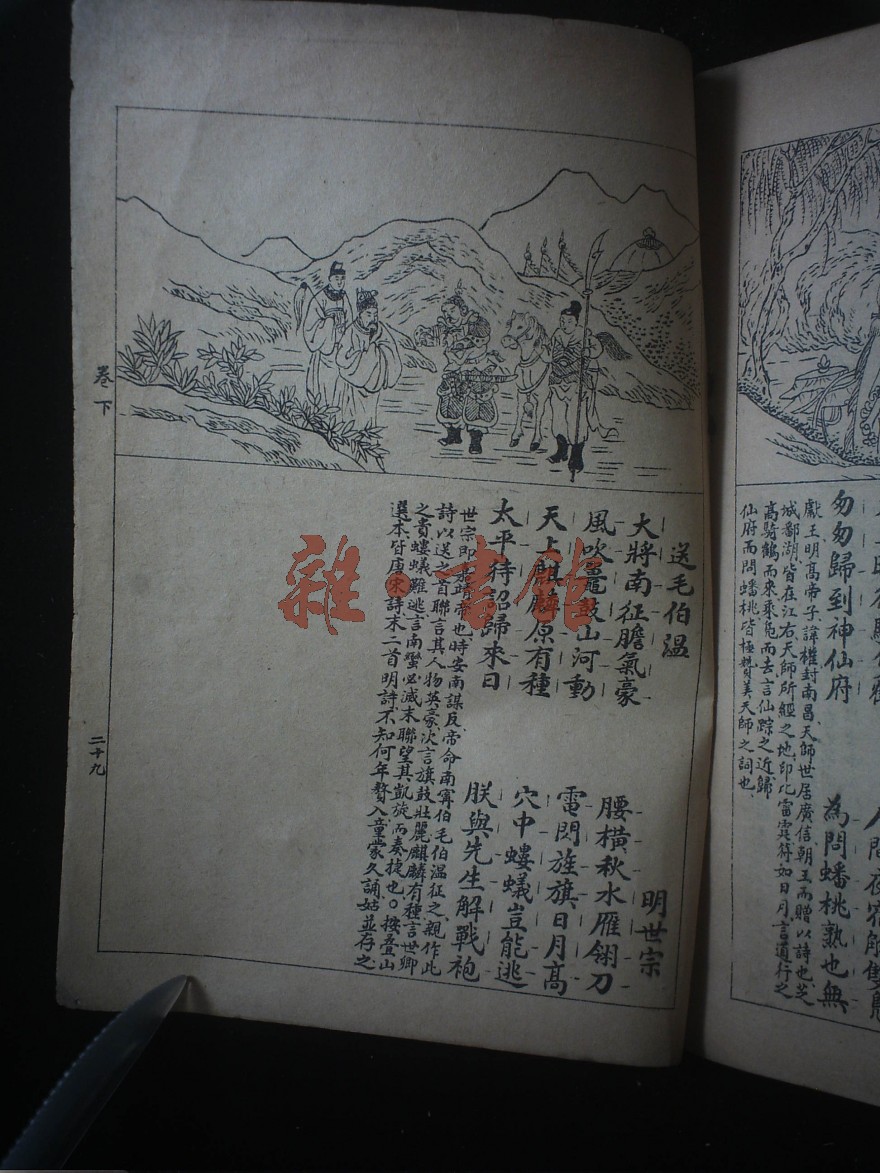 匆匆歸到神仙府　為問蟠桃熟也無
獻王明高帝子諱權封南昌天師世居廣信朝王而贈以詩也芝
城鄱湖皆在江右天師所經之地印化雷霆符如日月言道行之
高騎鶴而來乘凫而去言仙踪之近歸
仙府而問蟠桃皆極贊美天師之詞也
送毛伯温　明世宗
大將南征膽氣豪　腰橫秋水雁翎刀
風吹鼉鼓山河動　電閃旌旗日月高
天上麒麟原有種　穴中螻蟻豈能逃
太平待詔歸來日　朕與先生解戰袍
世宗即嘉靖帝也時安南謀反帝命南寧伯毛伯温征之親作此
詩以送之首聯言其人物英豪次言旗鼓壯麗麒麟有種言世卿
之貴螻蟻難逃言南蠻必滅末聯望其凱旋而奏捷也○按叠山
選本皆唐宋詩末二首明詩不知何年贅入童蒙久誦姑並存之
卷下
二十九
雜·書館